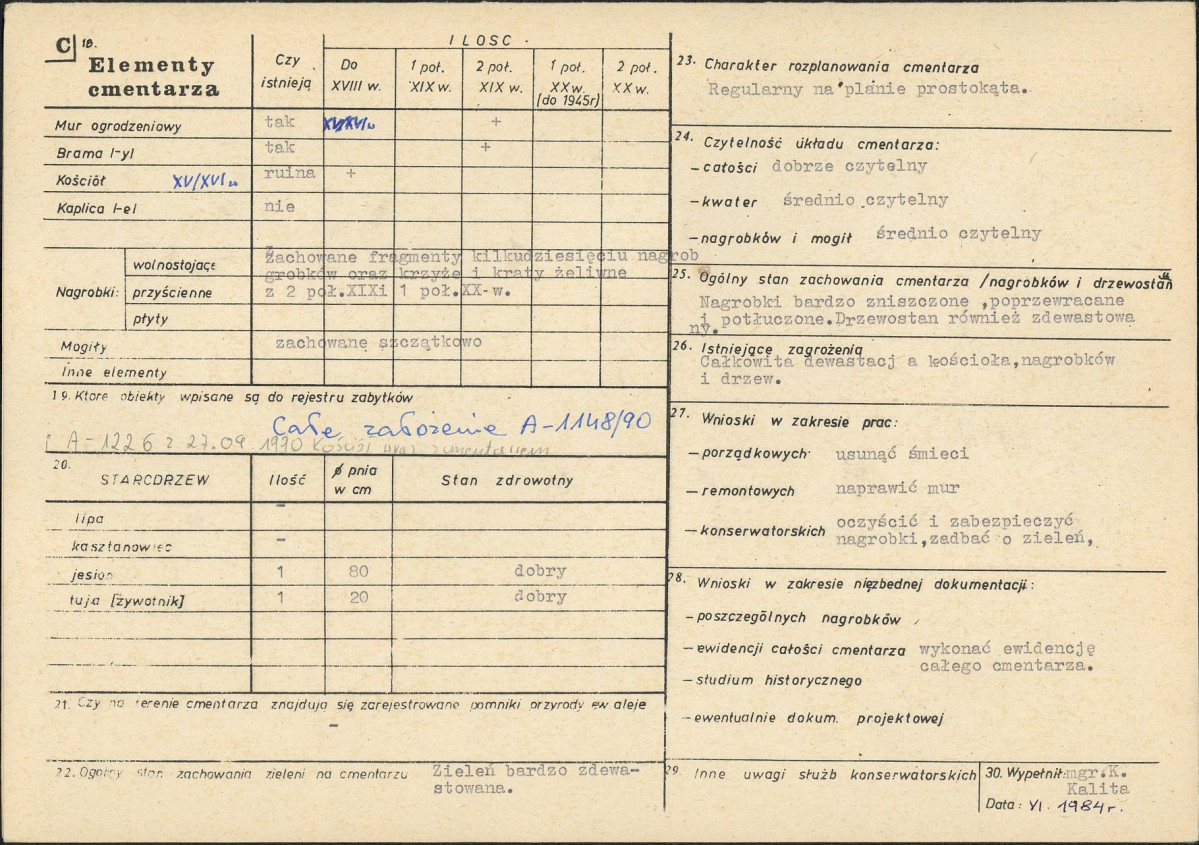 C 18.
Elementy
cmentarza
Czy
istnieją
ILOSC
Do
XVIII w.
1 poł.
XIX w.
2 poł.
XIX w.
1 poł.
XX w.
(do 1945r)
2 poł.
XX w.
Mur ogrodzeniowy tak XV/XVIw +
Brama /-y/ tak +
Kościół XV/XVIw ruina +
Kaplica /-e/ nie
Nagrobki:
wolnostojące
przyścienne
płyty
Zachowane fragmenty kilkudziesięciu nagrob
grobków oraz krzyże i kraty żeliwne
z 2 poł.XIXi 1 poł.XX-w.
Mogiły zachowane szczątkowo
Inne elementy
19. Ktore obiekty wpisane są do rejestru zabytków
Całe założenie A-1148/90
A-1226 z 27.09.1970 Kościół wraz z cmentarzem
20.
STARODRZEW Ilość ø pnia
w cm Stan zdrowotny
lipa -
kasztanowiec -
jesion 1 80 dobry
tuja [żywotnik] 1 20 dobry
21. Czy na terenie cmentarza znajdują się zarejestrowane pomniki przyrody ew aleje
-
22. Ogólny stan zachowania zieleni na cmentarzu Zieleń bardzo zdewa-
stowana.
23. Charakter rozplanowania cmentarza
Regularny na planie prostokąta.
24. Czytelność układu cmentarza:
- całości dobrze czytelny
- kwater średnio czytelny
- nagrobków i mogił średnio czytelny
25. Ogólny stan zachowania cmentarza /nagrobków i drzewostan
Nagrobki bardzo zniszczone ,poprzewracane
i potłuczone.Drzewostan również zdewastowa
ny.
26. Istniejące zagrożenia
Całkowita dewastacj a kościoła,nagrobków
i drzew.
27. Wnioski w zakresie prac:
- porządkowych usunąć śmieci
- remontowych naprawić mur
- konserwatorskich oczyścić i zabezpieczyć
nagrobki,zadbać o zieleń,
28. Wnioski w zakresie niezbednej dokumentacji:
- poszczególnych nagrobków
- ewidencji całości cmentarza wykonać ewidencję
całego cmentarza.
- studium historycznego
- ewentualnie dokum. projektowej
29. Inne uwagi służb konserwatorskich
30. Wypełnił: mgr.K.
Kalita
Data: VI. 1984r.